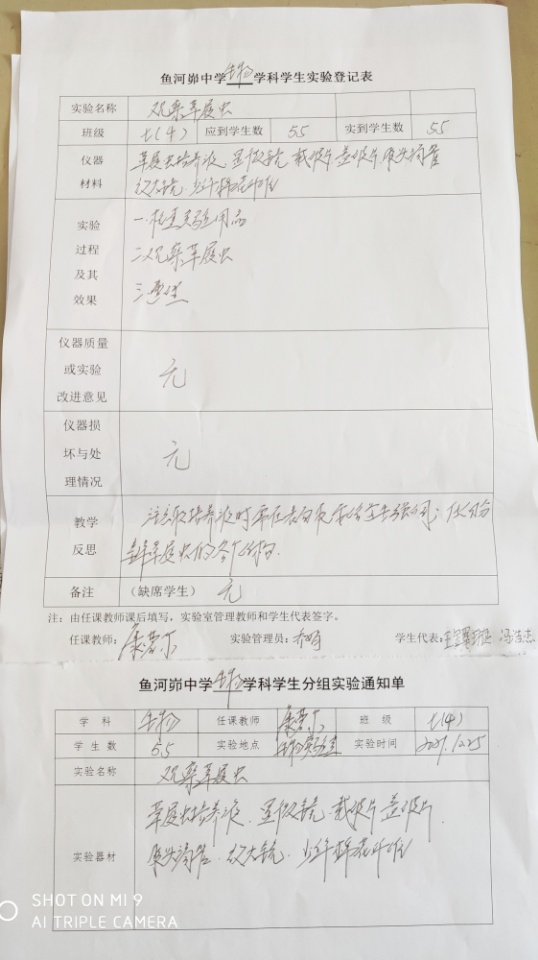 鱼河峁中学生物学科学生实验登记表
实验名称 观察草履虫
班级 七(4) 应到学生数 55 实到学生数 55
仪器材料 草履虫培养液 显微镜 载玻片 盖玻片 胶头滴管
放大镜 少许棉花纤维
实验过程及其效果 一.检查实验用品
二观察草履虫
三
仪器质量或实验改进意见 无
仪器损坏与处理情况 无
教学反思 注意取培养液时要在表面
草履虫的各个结构.
备注 (缺席学生) 无
注：由任课教师课后填写，实验室管理教师和学生代表签字。
任课教师: 实验管理员: 学生代表:
鱼河峁中学生物学科学生分组实验通知单
学科 生物 任课教师 班级 七(4)
学生数 55 实验地点 生物实验室 实验时间
实验名称 观察草履虫
实验器材 草履虫培养液. 显微镜. 载玻片 盖玻片.
胶头滴管. 放大镜. 少许棉花纤维
SHOT ON MI 9
AI TRIPLE CAMERA